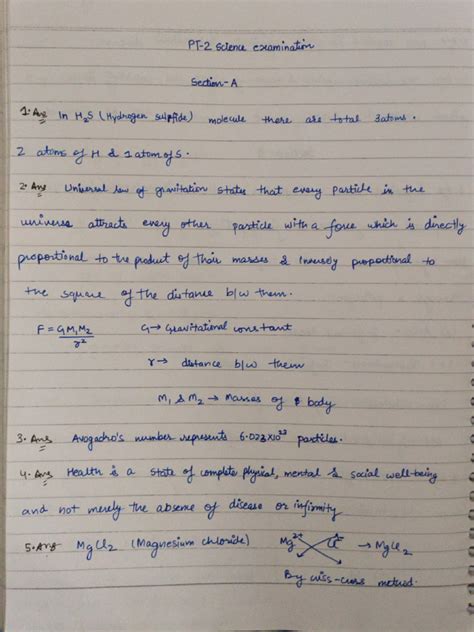 PT-2 Science examination
Section-A
1. Ans In H₂S (Hydrogen sulpfide) molecule there are total 3atoms.
2 atoms of H & 1 atom of S.
2. Ans Universal law of gravitation states that every particle in the
universe attracts every other particle with a force which is directly
proportional to the product of their masses & inversely propotional to
the square of the distance b/w them.
F = GM₁M₂/r² G→ Gravitational constant
r→ distance b/w them
M₁ & M₂ → Masses of body
3. Ans Avogadro's number represents 6.023×10²³ particles.
4. Ans Health is a state of complete physical, mental & social well-being
and not merely the absense of disease or infirmity
5. Ans MgCl₂ (Magnesium chloride) Mg²⁺ Cl⁻ → MgCl₂
By criss-cross method.